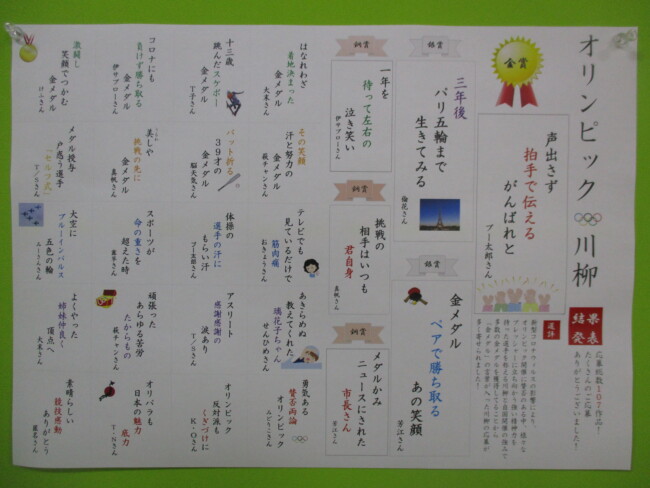 オリンピック川柳
結果
発表
応募総数107作品！
たくさんのご応募
ありがとうございました！
選評
金賞
声出さず
拍手で伝える
がんばれと
プー太郎さん
銀賞
三年後
パリ五輪まで
生きてみる
倫花さん
銀賞
金メダル
ペアで勝ち取る
あの笑顔
芳江さん
銅賞
一年を
待って左右の
泣き笑い
伊サブローさん
銅賞
挑戦の
相手はいつも
君自身
真帆さん
銅賞
メダルかみ
ニュースにされた
市長さん
芳江さん
はなれわざ
着地決まった
金メダル
大末さん
その笑顔
汗と努力の
金メダル
萩チャンさん
テレビでも
見ているだけで
筋肉痛
おきょうさん
あきらめぬ
教えてくれた
璃花子ちゃん
せんひめさん
勇気ある
賛否両論
オリンピック
みどりこさん
十三歳
挑んだスケボー
金メダル
T子さん
バット折る
39才の
金メダル
脳天気さん
体操の
選手の汗に
もらい汗
プー太郎さん
アスリート
感謝感謝の
涙あり
T/Sさん
オリンピック
反対派も
くぎづけに
K・Oさん
コロナにも
負けず勝ち取る
金メダル
伊サブローさん
美しや
挑戦の先に
金メダル
真帆さん
スポーツが
命の重さを
超えた時
匿名さん
頑張った
あらゆる苦労
たからもの
萩チャンさん
オリパラも
日本の魅力
底力
T・Nさん
激闘し
笑顔でつかむ
金メダル
けふさん
メダル授与
戸惑う選手
「セルフ式」
T/Sさん
大空に
ブルーインパルス
五色の輪
ニーさんさん
よくやった
姉妹仲良く
頂点へ
大末さん
素晴らしい
競技感動
ありがとう
匿名さん